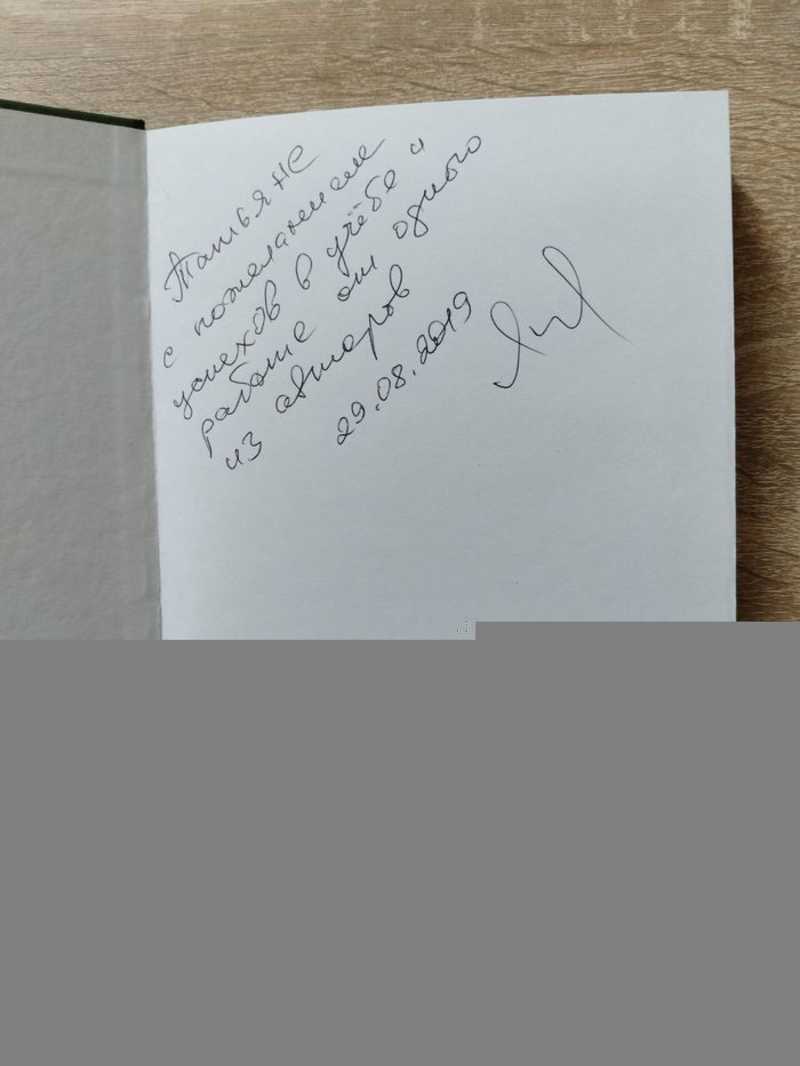 Татьяне
с пожеланием
успехов в учёбе и
работе от одного
из авторов
29.08.2019